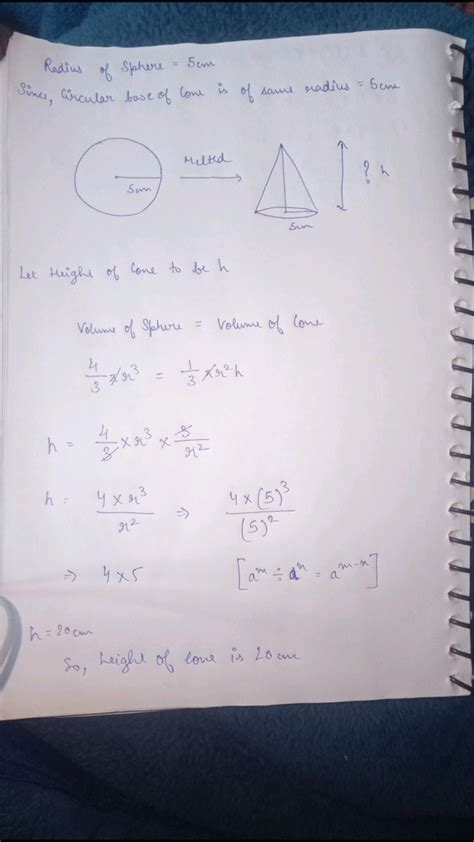 Radius of Sphere = 5cm
Since, Circular base of Cone is of same radius = 5cm
Melted
5cm
? h
5cm
Let Height of Cone to be h
Volume of Sphere = Volume of Cone
4/3 πr³ = 1/3 πr²h
h = 4/3 × r³ × 3/r²
h = 4 × r³/r² ⇒ 4 × (5)³/(5)²
⇒ 4×5 [aᵐ ÷ aⁿ = aᵐ⁻ⁿ]
h = 20cm
So, height of Cone is 20cm